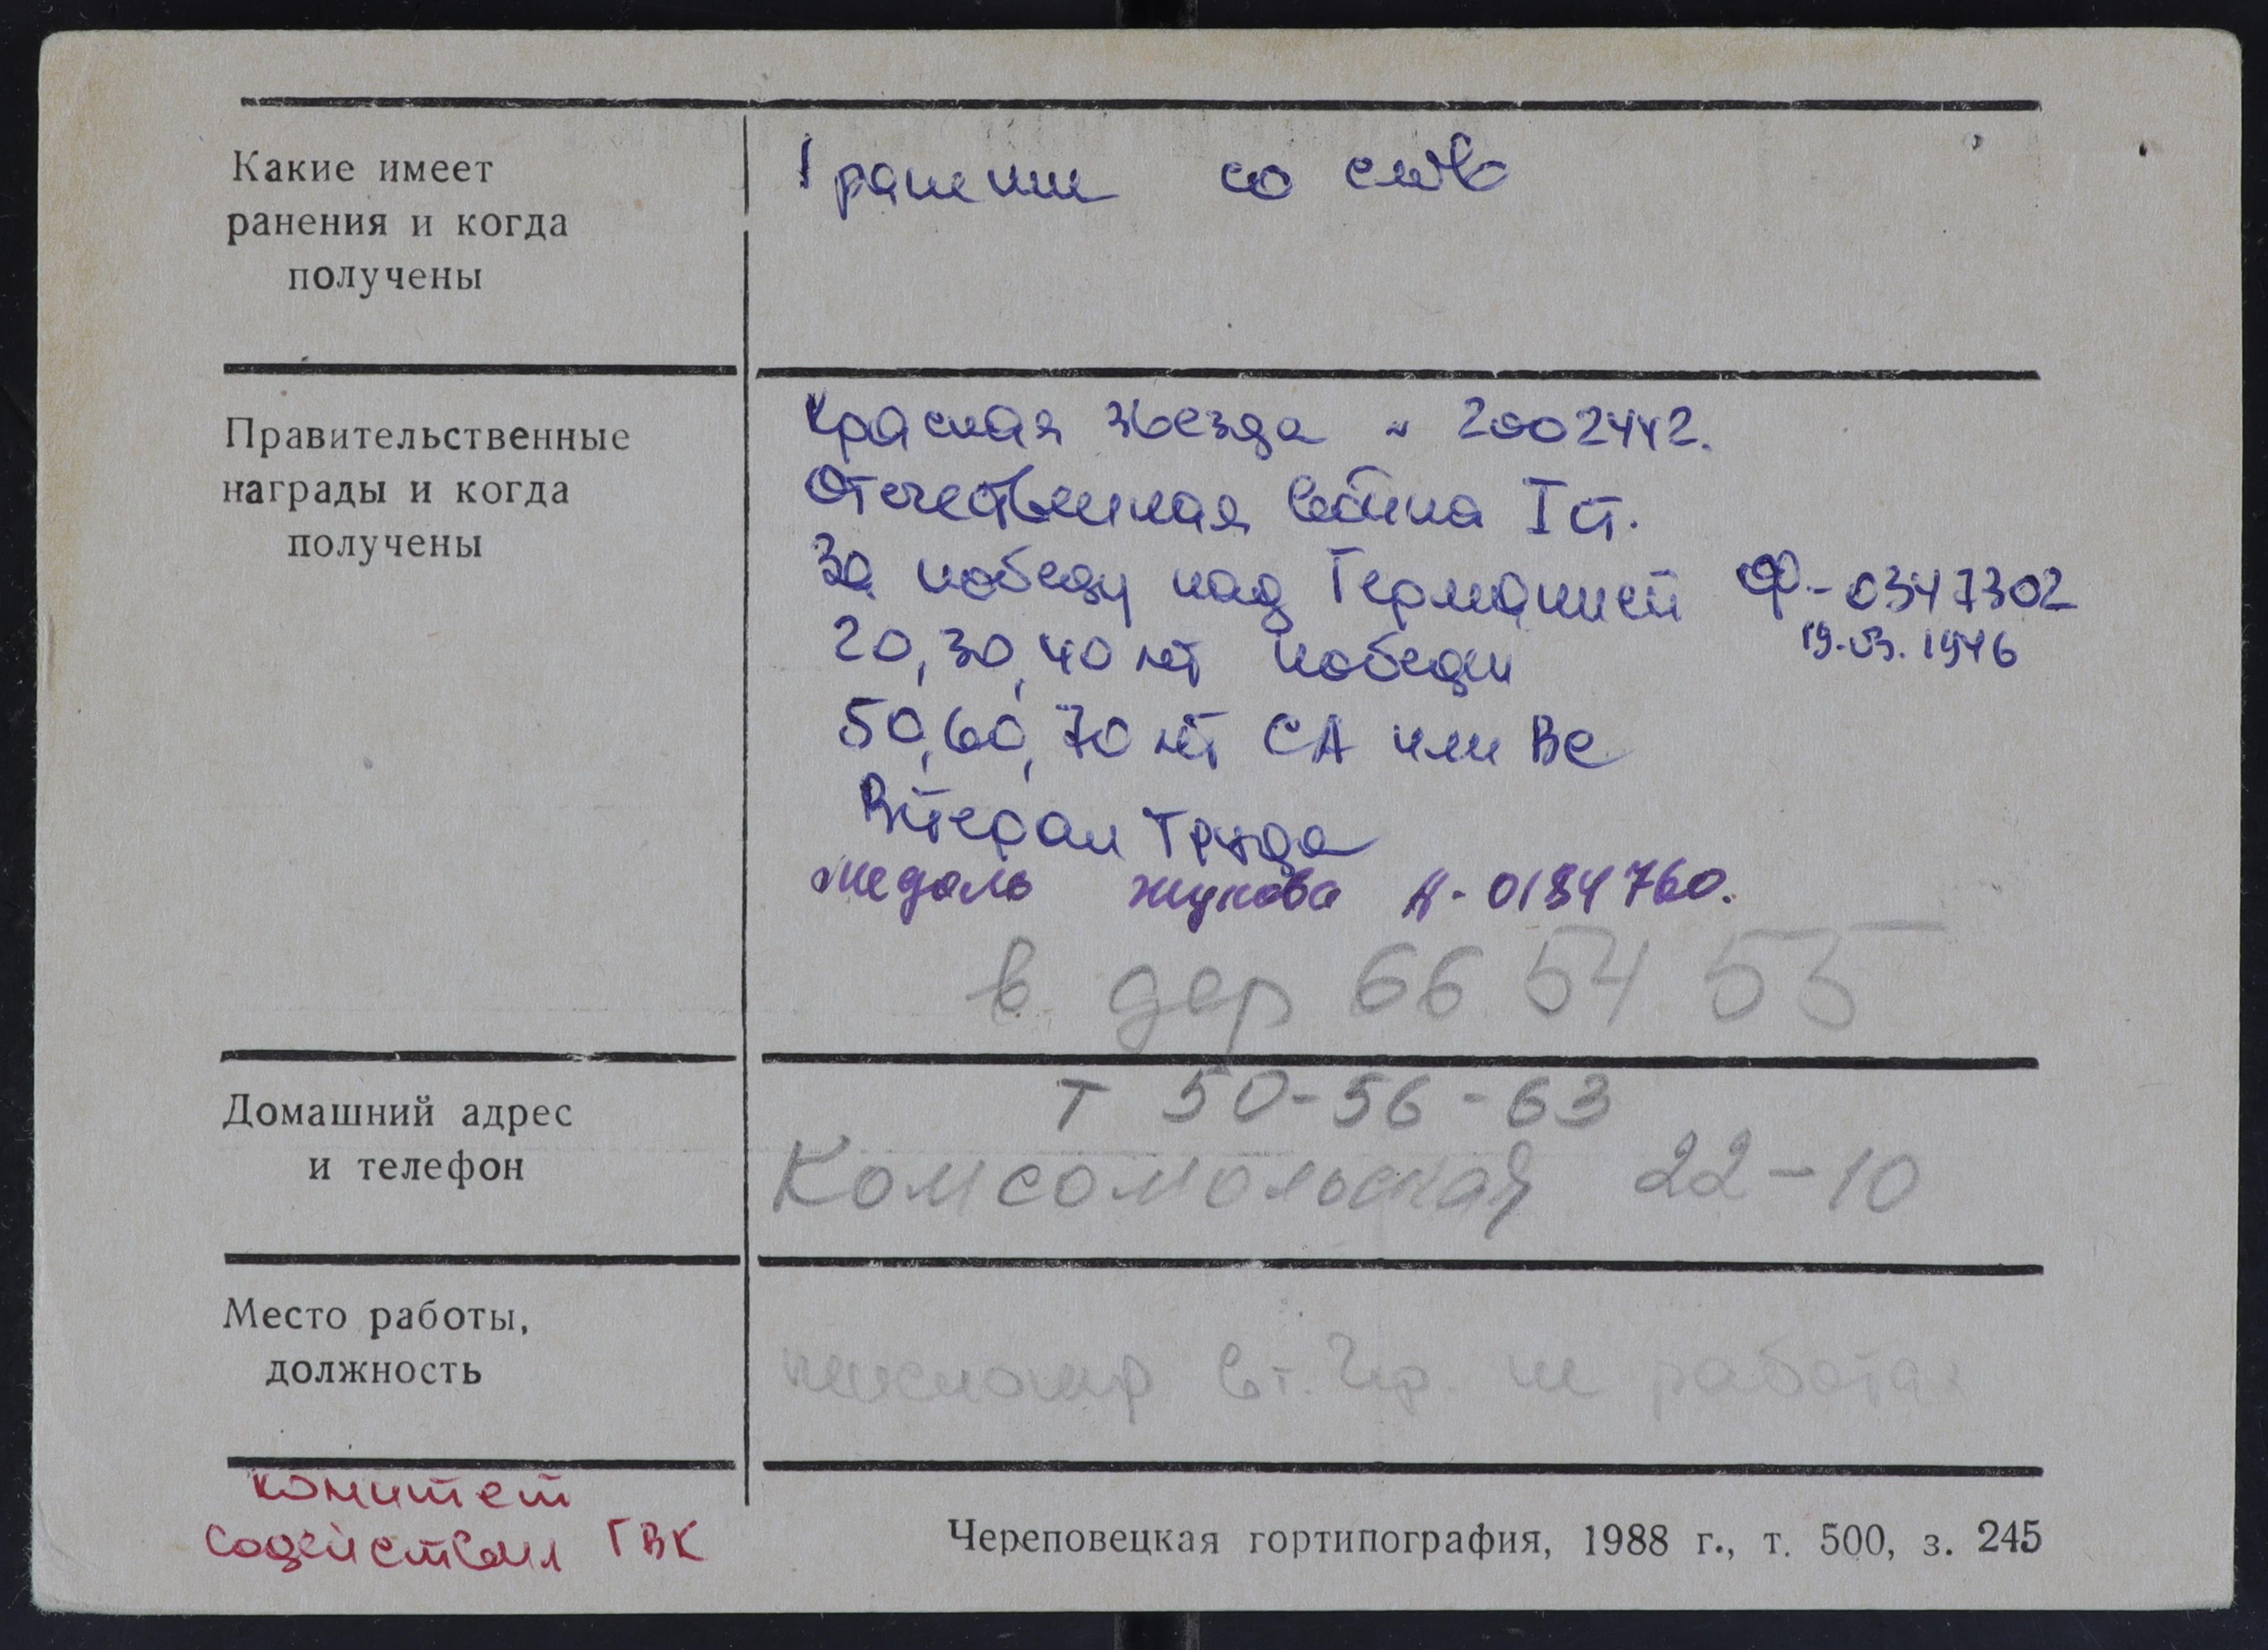 Какие имеет
ранения и когда
получены
1 ранение со слов
Правительственные
награды и когда
получены
Красная звезда ~ 2002442.
Отечественная война I ст.
За победу над Германией Ф-0347302
19.03.1946
20, 30, 40 лет победы
50, 60, 70 лет СА или ВС
Ветеран Труда
медаль Жукова А-0184760.
в дер 66 54 55
Домашний адрес
и телефон
т 50-56-63
Комсомольская 22-10
Место работы,
должность
пенсионер Вт. гр. не работа
комитет
содействия ГВК
Череповецкая гортипография, 1988 г., т. 500, з. 245